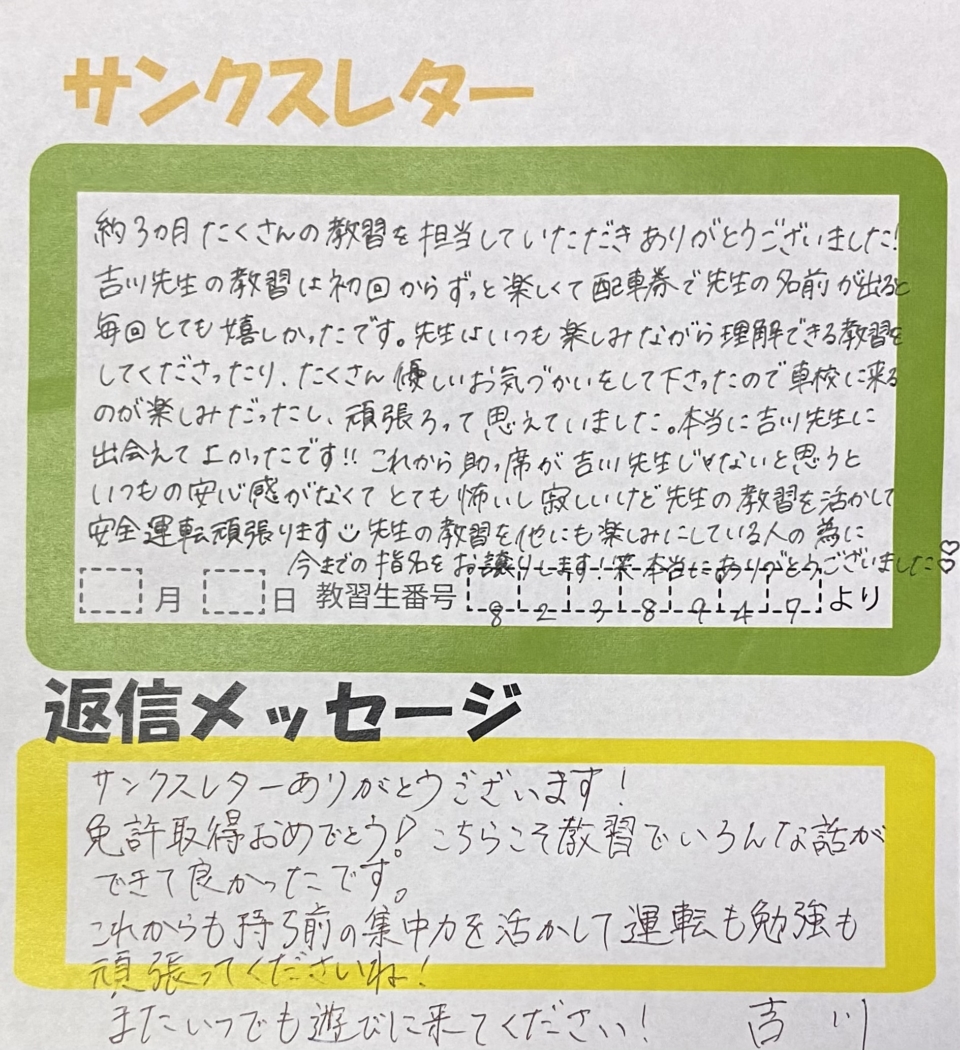 サンクスレター
約3カ月たくさんの教習を担当していただきありがとうございました!
吉川先生の教習は初回からずっと楽しくて配車券で先生の名前が出ると
毎回とても嬉しかったです。先生はいつも楽しみながら理解できる教習を
してくださったり、たくさん優しいお気づかいをして下さったので車校に来る
のが楽しみだったし、頑張ろって思えていました。本当に吉川先生に
出会えてよかったです!!これから助っ席が吉川先生じゃないと思うと
いつもの安心感がなくてとても怖いし寂しいけど先生の教習を活かして
安全運転頑張ります☺先生の教習を他にも楽しみにしている人の為に
今までの指名をお譲りします!笑 本当にありがとうございました♡♡
月 日 教習生番号 8238947 より
返信メッセージ
サンクスレターありがとうございます!
免許取得おめでとう!こちらこそ教習でいろんな話が
できて良かったです。
これからも持ち前の集中力を活かして運転も勉強も
頑張ってくださいね!
またいつでも遊びに来てください! 吉川